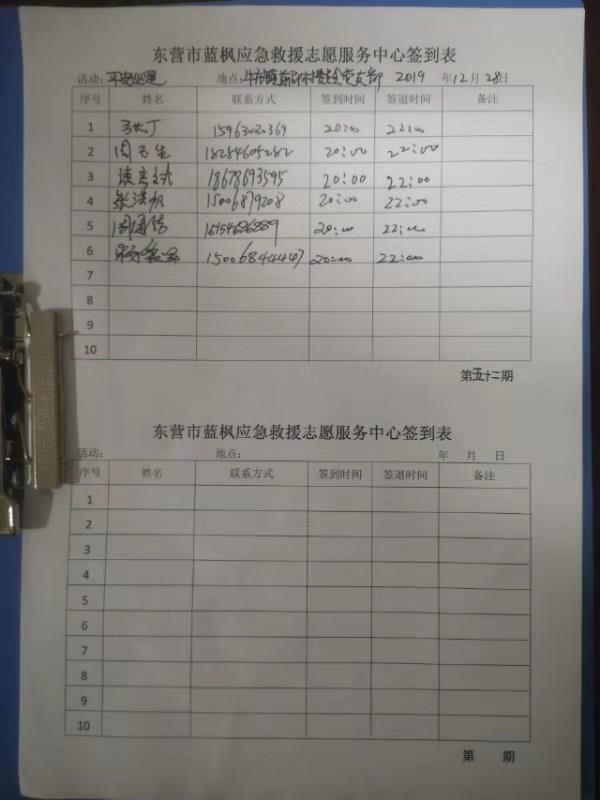 东营市蓝枫应急救援志愿服务中心签到表
活动: 地点: 2019 年 12 月 28 日
序号 姓名 联系方式 签到时间 签退时间 备注
1 20:00 22:00
2 18254605282 20:00 22:00
3 18678693595 20:00 22:00
4 15006879208 20:00 22:00
5 20:00 22:00
6 20:00 22:00
7
8
9
10
第五十二期
东营市蓝枫应急救援志愿服务中心签到表
活动: 地点: 年 月 日
序号 姓名 联系方式 签到时间 签退时间 备注
1
2
3
4
5
6
7
8
9
10
第 期